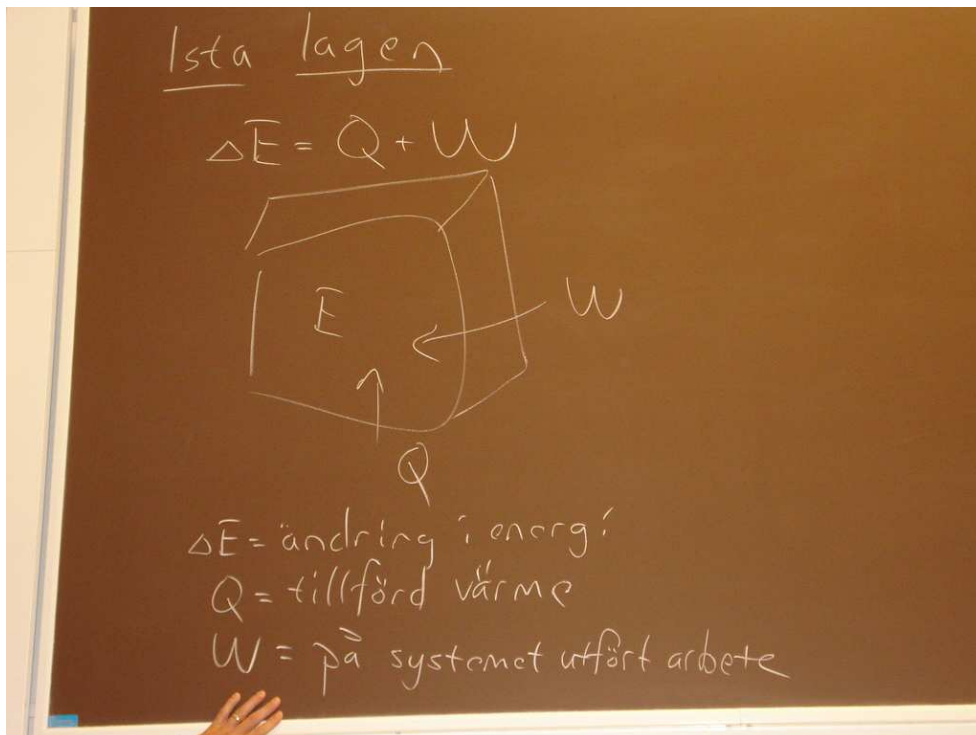 1sta lagen
△E = Q + W
E
W
Q
△E = ändring i energi
Q = tillförd värme
W = på systemet utfört arbete